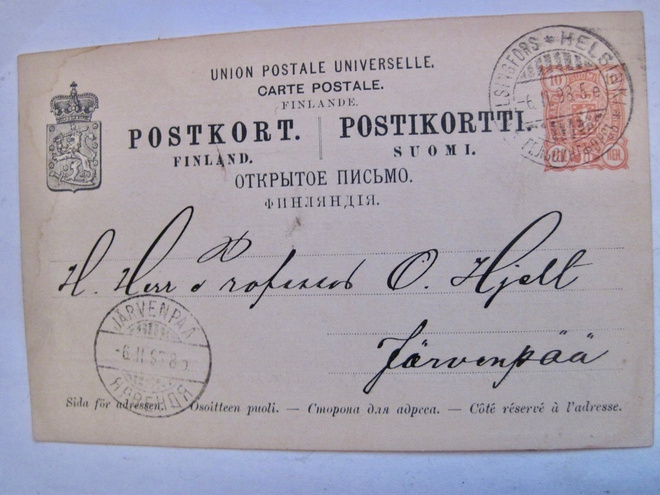 UNION POSTALE UNIVERSELLE.
CARTE POSTALE.
FINLANDE.
POSTKORT. POSTIKORTTI.
FINLAND. SUOMI.
ОТКРЫТОЕ ПИСЬМО.
ФИНЛЯНДІЯ.
HELSINGFORS * HELSINKI
10
H. Herr Professor O. Hjelt
Järvenpää
JÄRVENPÄÄ
Sida för adressen. — Osoitteen puoli. — Сторона для адреса. — Côté réservé à l'adresse.